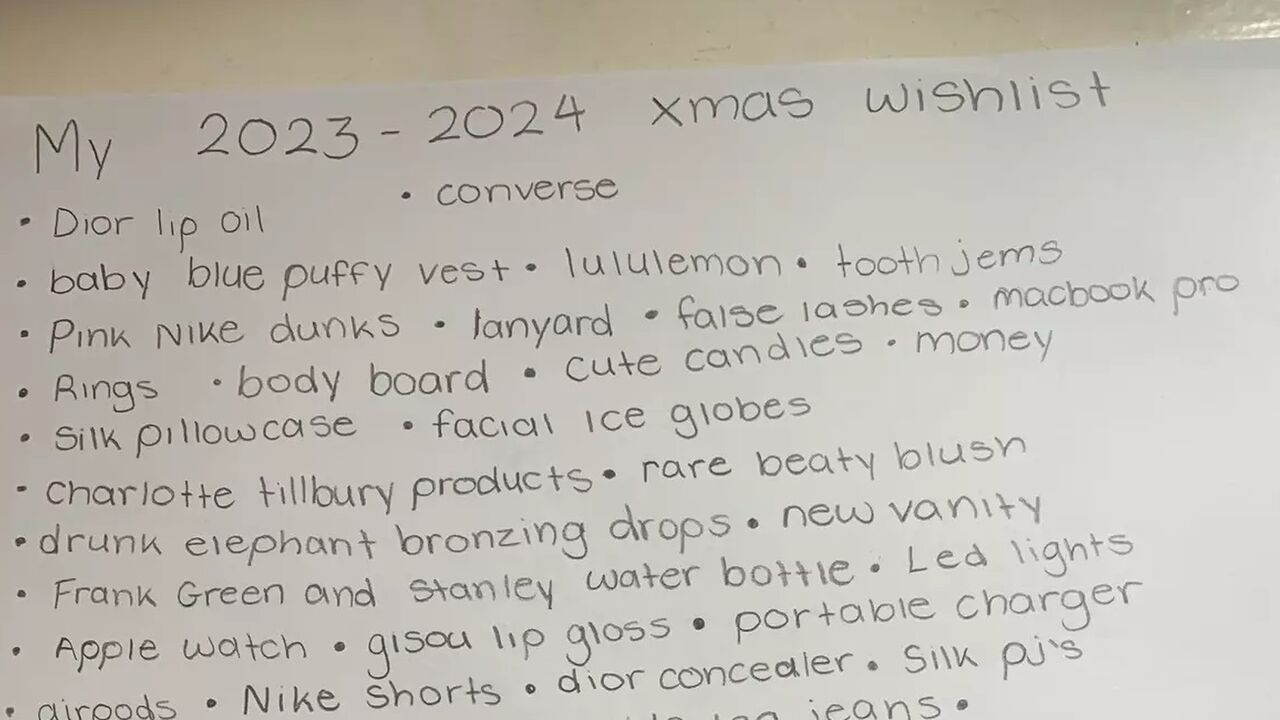 My 2023-2024 xmas wishlist
• converse
• Dior lip oil
• baby blue puffy vest • lululemon • tooth jems
• Pink Nike dunks • lanyard • false lashes • macbook pro
• Rings • body board • cute candles • money
• Silk pillowcase • facial ice globes
- charlotte tillbury products • rare beaty blush
• drunk elephant bronzing drops • new vanity
• Frank Green and Stanley water bottle • Led lights
• Apple watch • gisou lip gloss • portable charger
• airpods • Nike shorts • dior concealer • Silk pj's
jeans •